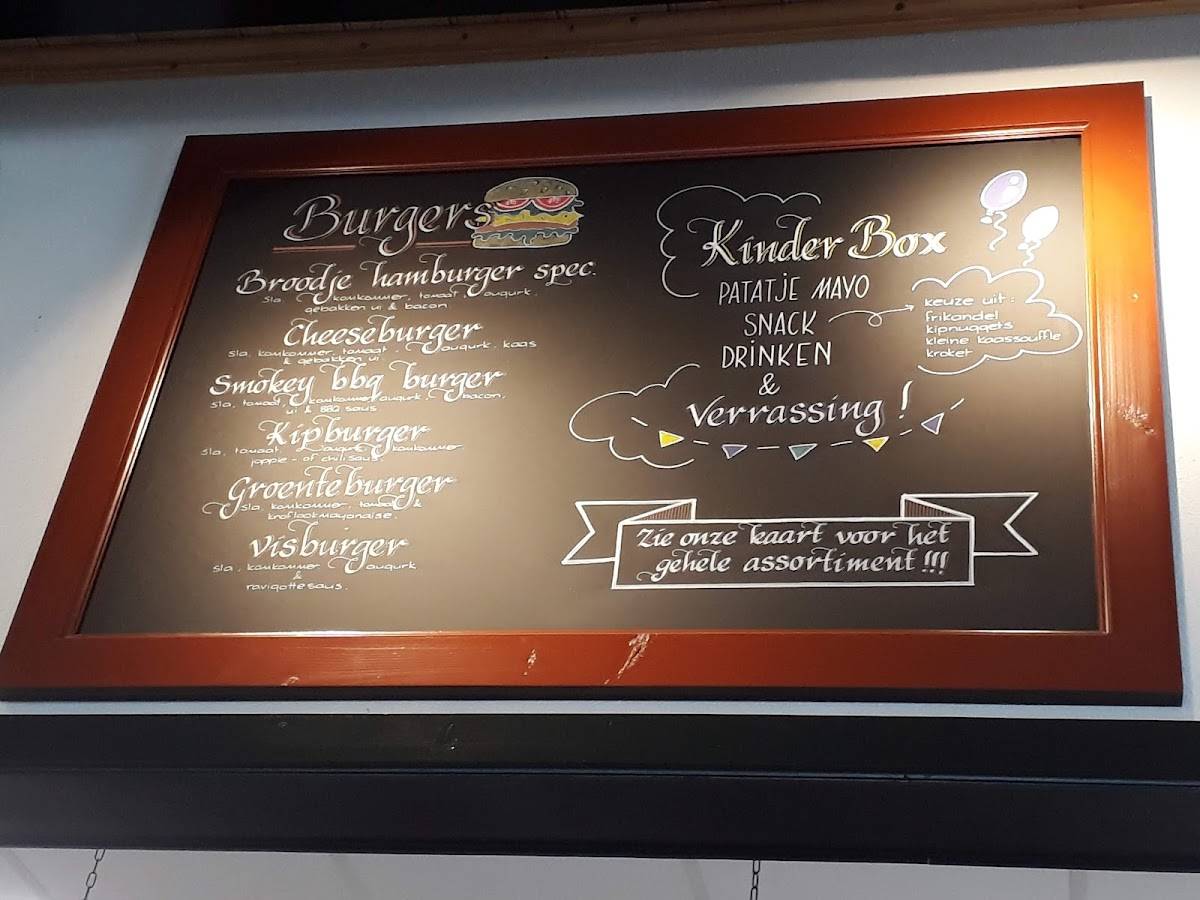 Burgers
Broodje hamburger spec.
sla, komkommer, tomaat, augurk,
gebakken ui & bacon
Cheeseburger
sla, komkommer, tomaat, augurk, kaas
& gebakken ui
Smokey bbq burger
sla, tomaat, komkommer augurk, bacon,
ui & BBQ saus
Kipburger
sla, tomaat, augurk, komkommer
joppie- of chilisaus.
Groenteburger
sla, komkommer, tomaat &
knoflookmayonaise.
Visburger
sla, komkommer augurk
&
ravigottesaus.
Kinder Box
PATATJE MAYO
SNACK
DRINKEN
&
Verrassing!
keuze uit:
frikandel
kipnuggets
kleine kaassouffle
kroket
Zie onze kaart voor het
gehele assortiment!!!